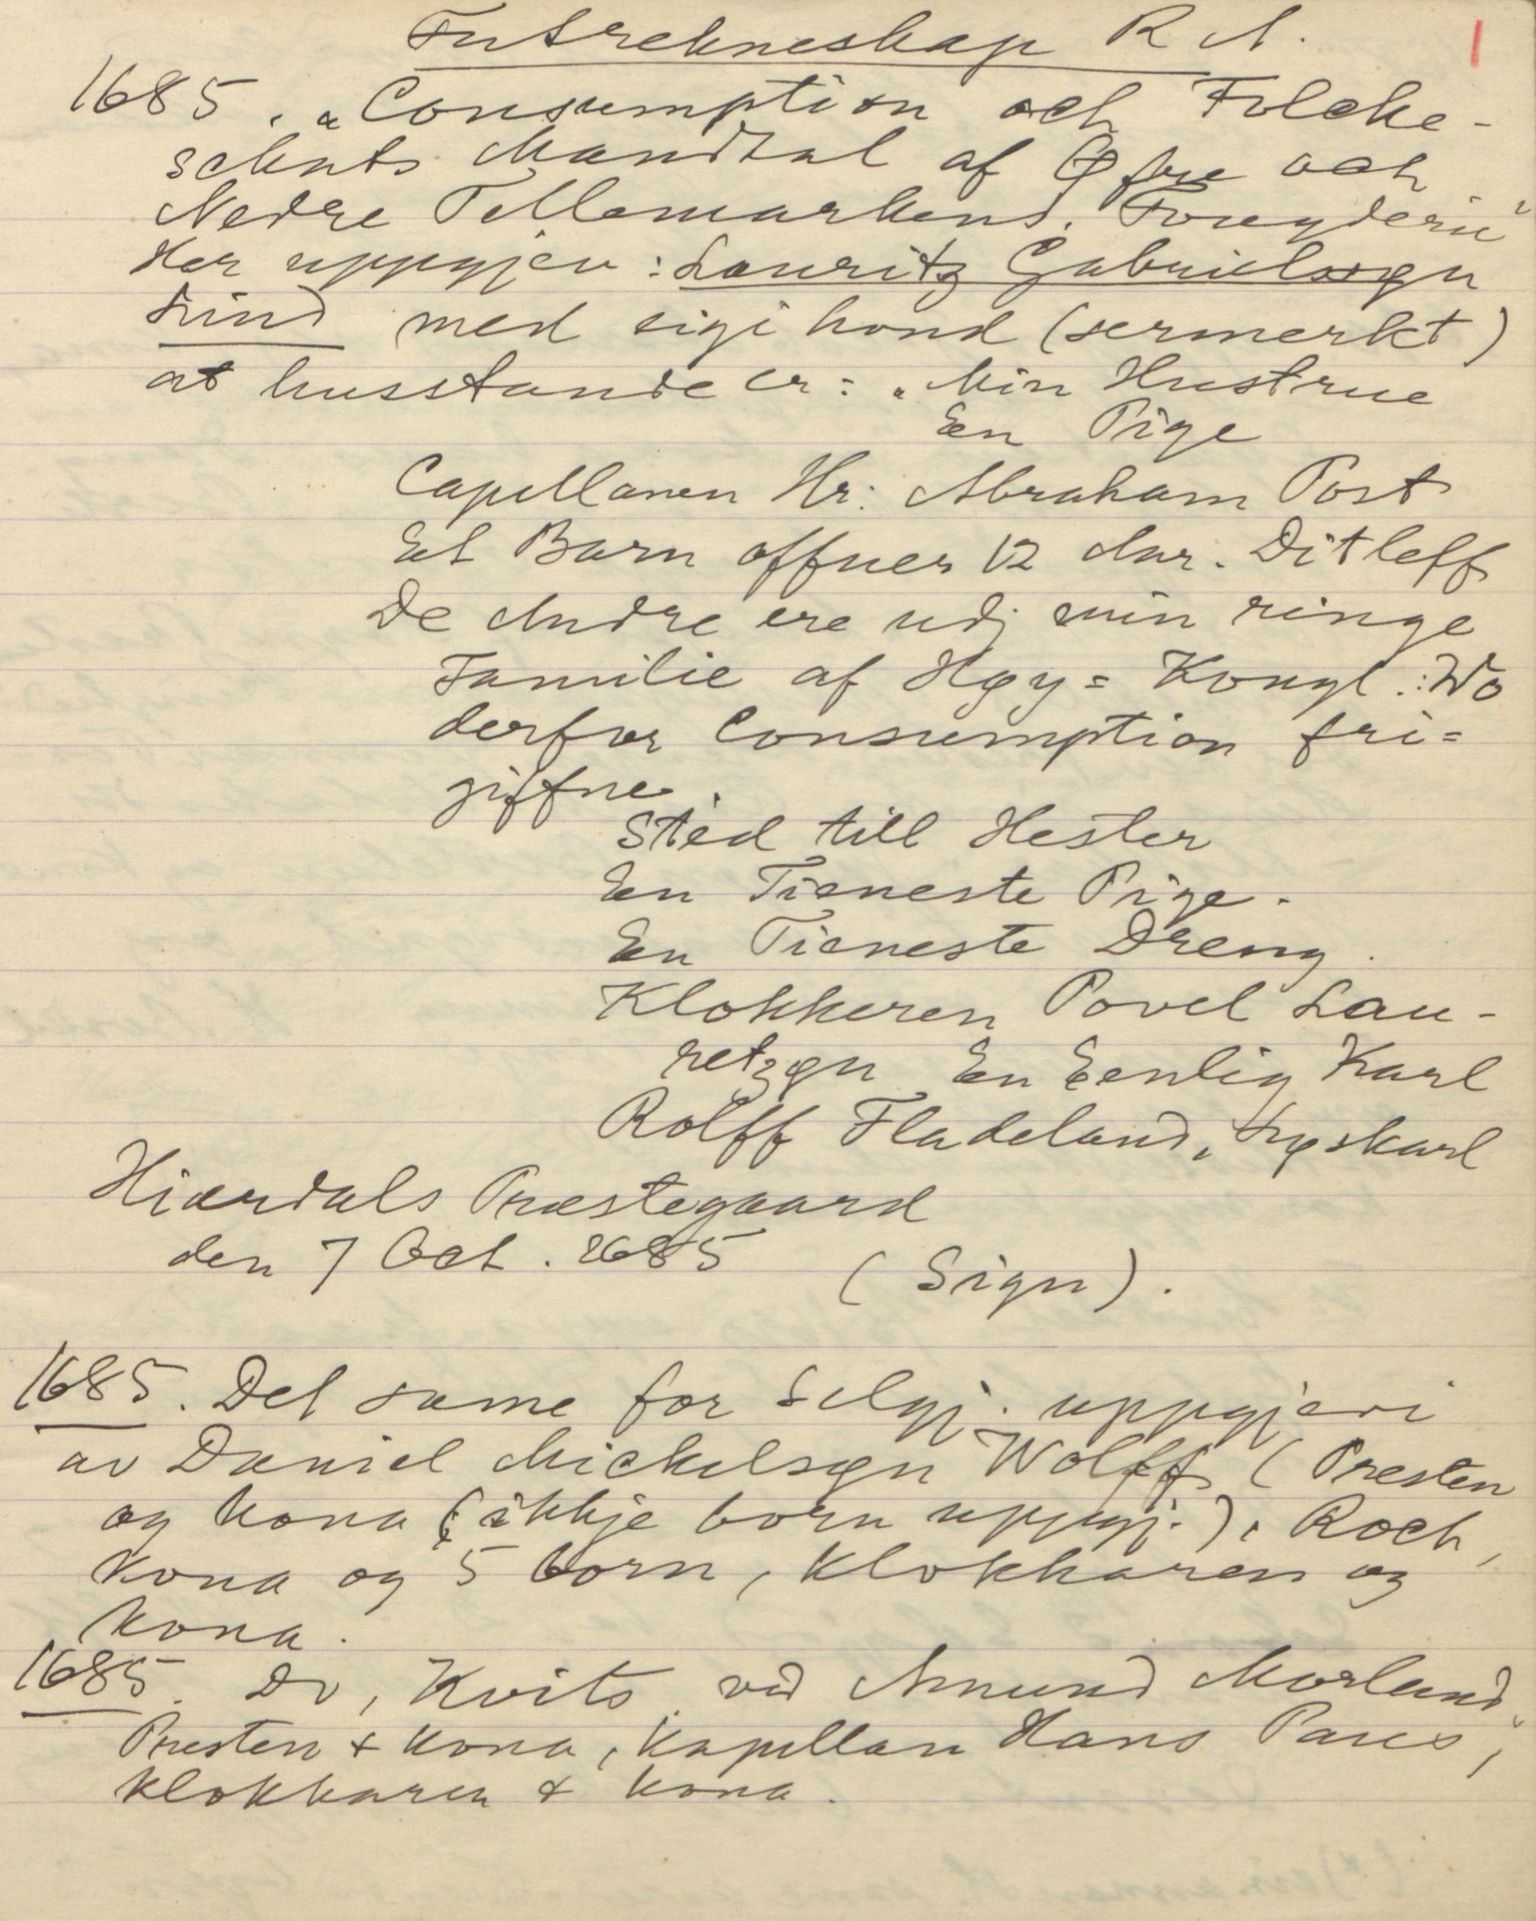 Futrekneskap R A.
1
1685. „Consumption och Folcke-
schats Mandtal af Øfre och
Nedre Tellemarkens Fougderie"
Her uppgjev: Lauritz Gabrielsøn
Lind med eigi hond (sermerkt)
at husstande er: „Min Hustrue
En Pige
Capellanen Hr: Abraham Post
Et Barn offuer 12 Aar. Ditleff
De Andre ere udj min ringe
Familie af Høy= Kongl.: Mo
derfor Consumption fri=
giffne.
Sted till Hester
En Tieneste Pige.
En Tieneste Dreng.
Klokkeren Povel Lau-
retzøn En Eenlig Karl
Rolff Fladeland, Løskarl
Hiærdals Præstegaard
den 7 Oct. 1685
(Sign).
1685. Det same for Selgj. uppgjevi
av Daniel Mickelsøn Wolff (Presten
og kona (ikkje born uppgj.), Roch,
kona og 5 born, klokkaren og
kona.
1685. Do, Kvits. ved Amund Morland,
Presten + kona, kapellan Hans Paus,
klokkaren + kona.